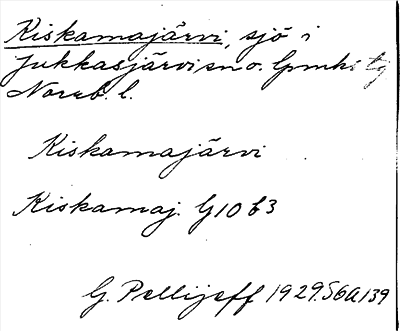 Kiskamajärvi, sjö i
Jukkasjärvi sn o. lpmks tg
Norrb. l.
Kiskamajärvi
Kiskamaj. G10 b3
G. Pellijeff 1929. S6A139